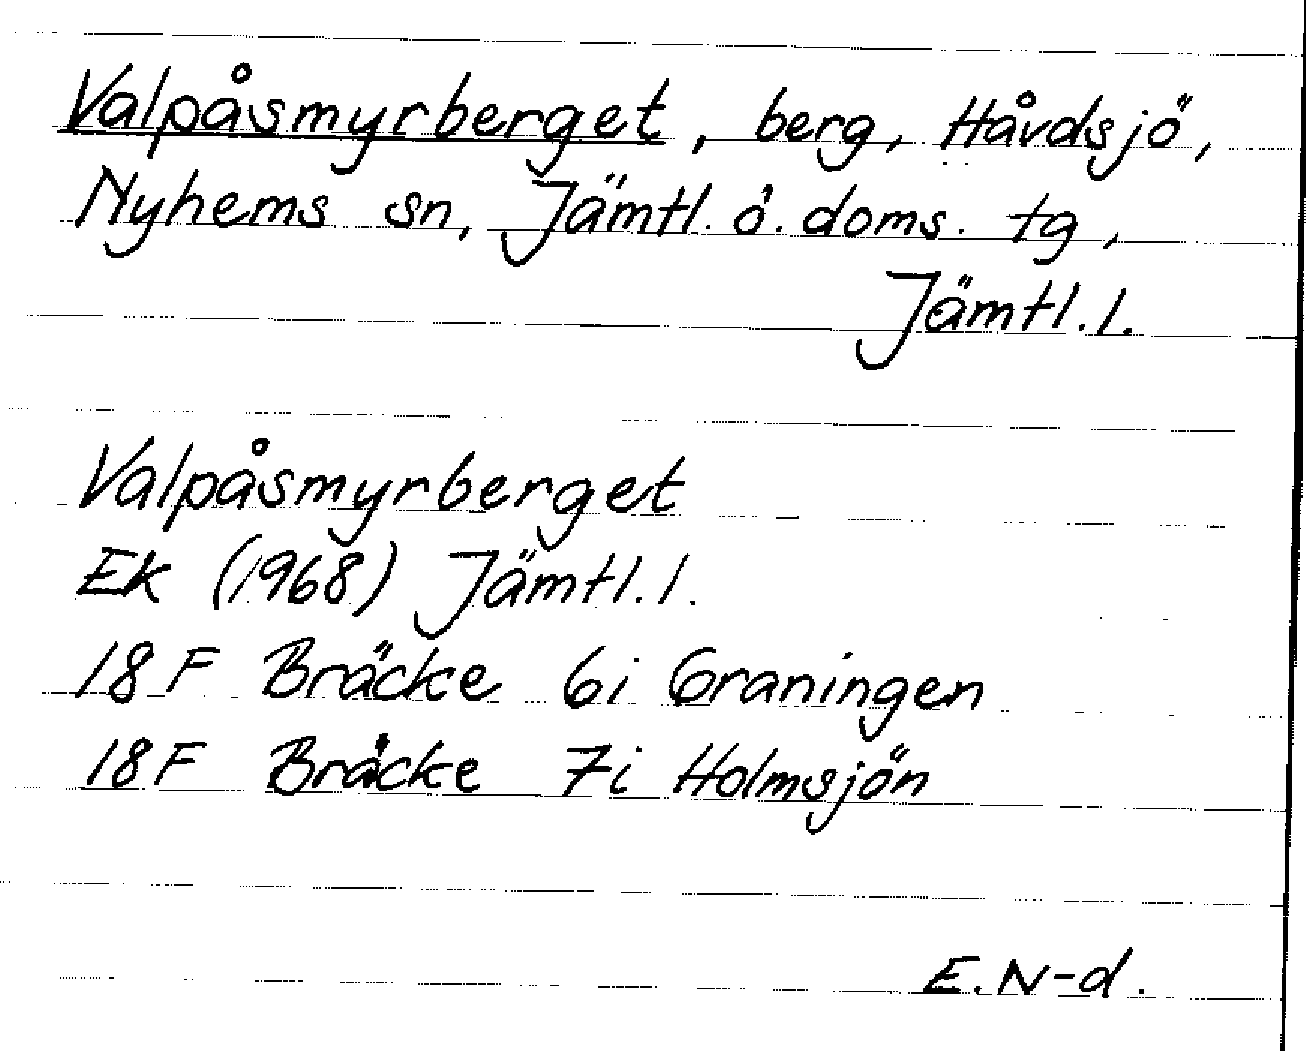 Valpåsmyrberget, berg, Håvdsjö,
Nyhems sn, Jämtl. ö. doms. tg,
Jämtl. l.
Valpåsmyrberget
Ek (1968) Jämtl. l.
18 F Bräcke 6i Graningen
18 F Bräcke 7i Holmsjön
E. N-d.